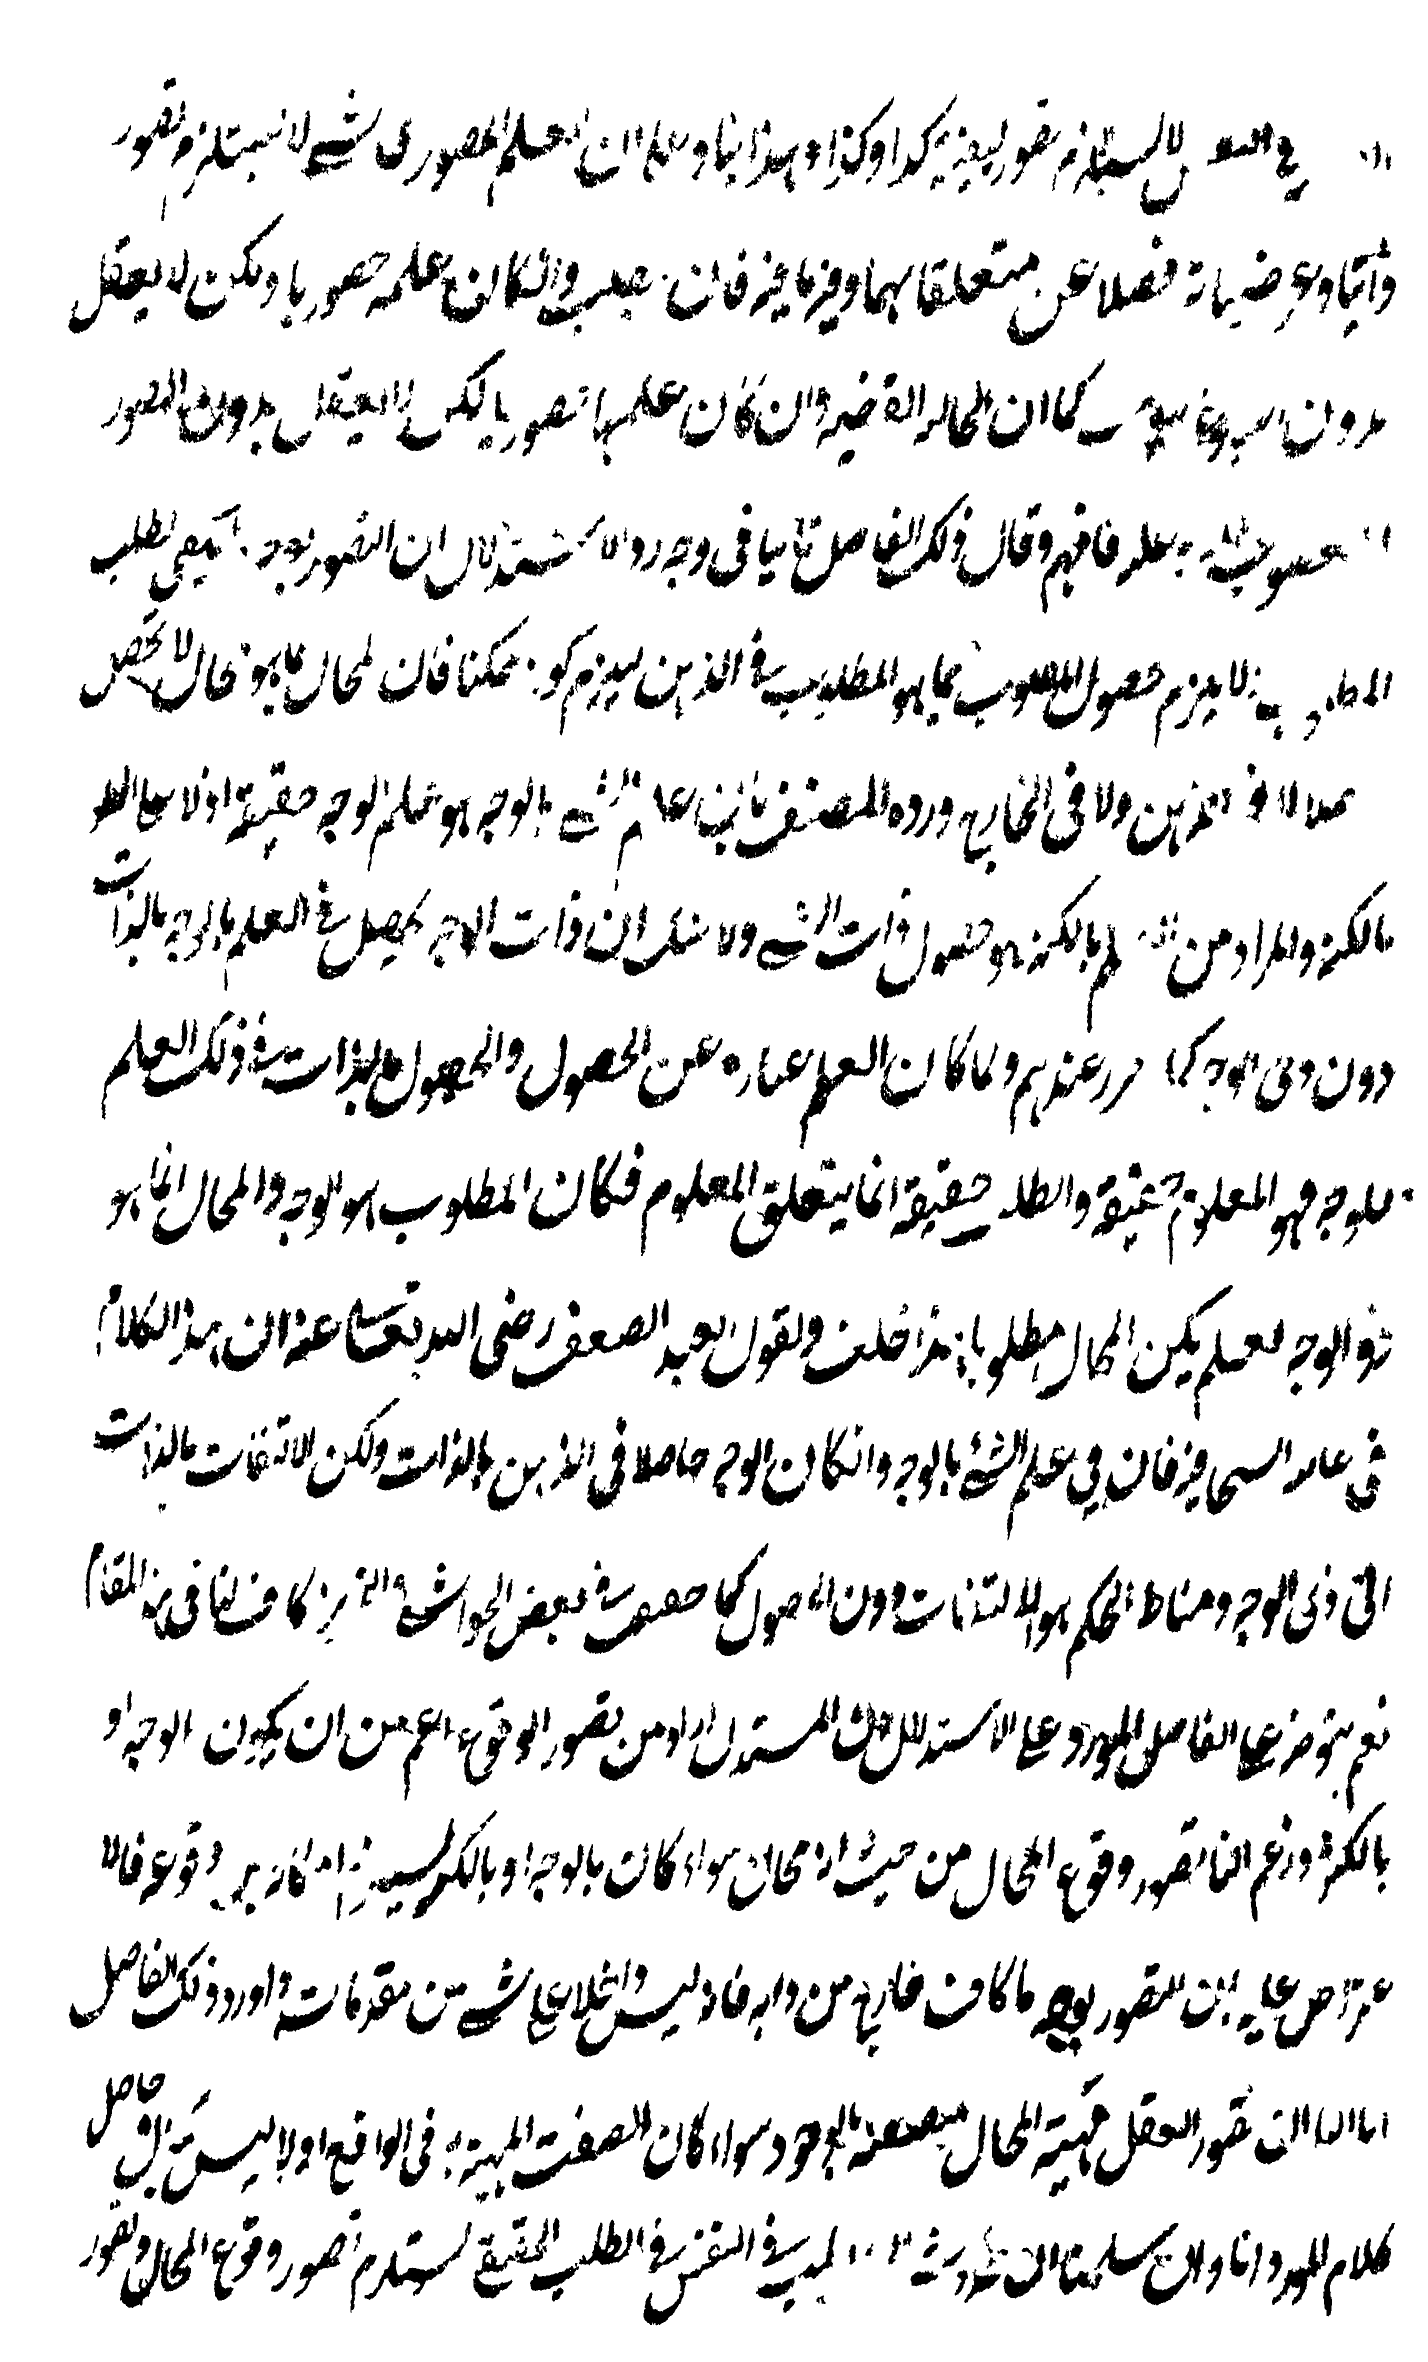 في النفس لا يستلزم تصور ليفية كذا وكذا وبهذا بناء وعلم ان العلم الحضوري بشئ لا يستلزم تصور
ذاتياته وعرضياته فضلا عن متعلقاتهما وفيه ما فيه فان الطلب وان كان علمه حضوريا ولكن لا يعقل
بدون المطلوب كما ان الحالة القضية وان كان علمها تصوريا لكن لا يعقل بدون تصور
فافهم وقال ذلك الفاضل ثانيا في وجه رد الاستدلال ان التصور بوجه ما يكفي لطلب
المطلوب فلا يلزم حصول المطلوب بما هو المطلوب في الذهن ليلزم كونه ممكنا فان المحال بما هو محال لا يحصل
اصلا لا في الذهن ولا في الخارج ورده المصنف بان علم الشئ بالوجه هو علم الوجه حقيقة اولا على العلم
بالكنه والمراد من العلم بالكنه هو حصول ذات الشئ ولا شك ان ذات الوجه يحصل في العلم بالوجه بالذات
دون ذي الوجه كما تقرر عندهم ولما كان العلم عبارة عن الحصول والحصول بالذات في ذلك العلم
للوجه فهو المعلوم حقيقة والطلب حقيقة انما يتعلق بالمعلوم فكان المطلوب هو الوجه والمحال انما هو
ذو الوجه فلم يكن المحال مطلوبا هذا خلف ويقول العبد الضعيف رضي الله تعالى عنه ان هذا الكلام
في غاية السخافة فان في علم الشئ بالوجه وان كان الوجه حاصلا في الذهن بالذات ولكن الالتفات بالذات
الى ذي الوجه ومناط الحكم هو الالتفات دون الحصول كما حققت في بعض الحواشي كاف لنا في هذا المقام
نعم يتوجه على الفاضل المورد على الاستدلال ان المستدل اراد من تصور الوقوع اعم من ان يكون بالوجه او
بالكنه وزعم ان تصور وقوع المحال من حيث انه محال سواء كان بالوجه او بالكنه يستلزم امكان وقوعه فالا
عتراض عليه بان التصور بوجه ما كاف خارج من دابه فانه ليس داخلا على شئ من مقدماته واورد ذلك الفاضل
ثالثا ان تصور العقل مهية المحال متصفة بالوجود سواء كان اتصفت المهية به في الواقع اولا ليس بمحال حاصل
كلام المورد انا وان سلمنا ان الطلب في النفس في الطلب الحقيقي يستلزم تصور وقوع المحال وتصور